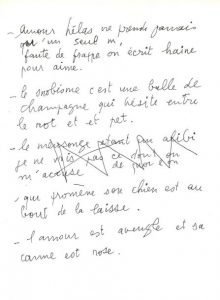 - Amour hélas ne prends jamais
qu'un seul m,
faute de frappe on écrit haine
pour aime.
- le snobisme c'est une bulle de
champagne qui hésite entre
le rot et et pet.
- le mensonge
je ne vois pas ce dont on
m'accuse de
- qui promène son chien est au
bout de la laisse.
- l'amour est aveugle et sa
canne est rose.